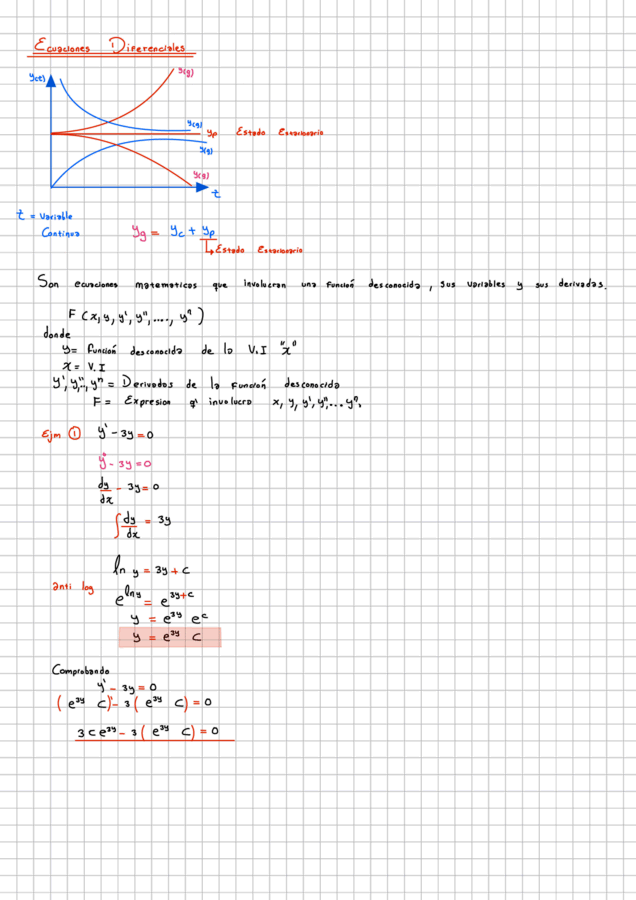 Ecuaciones Diferenciales
y(t)
y(g)
y(g)
yₚ Estado Estacionario
y(g)
y(g)
t
t = Variable
Continua
y_g = y_c + y_p
↳ Estado Estacionario
Son ecuaciones matematicas que involucran una función desconocida, sus variables y sus derivadas.
F (x, y, y', y'', ...., yⁿ)
donde
y = función desconocida de la V.I "x"
x = V.I
y', y'', .., yⁿ = Derivadas de la función desconocida
F = Expresion q' involucra x, y, y', y'', ... yⁿ,
Ejm ① y' - 3y = 0
y' - 3y = 0
dy/dx - 3y = 0
∫ dy/dx = 3y
ln y = 3y + c
anti log
e^{ln y} = e^{3y+c}
y = e^{3y} e^c
y = e^{3y} C
Comprobando
y' - 3y = 0
(e^{3y} C)' - 3 (e^{3y} C) = 0
3 C e^{3y} - 3 (e^{3y} C) = 0